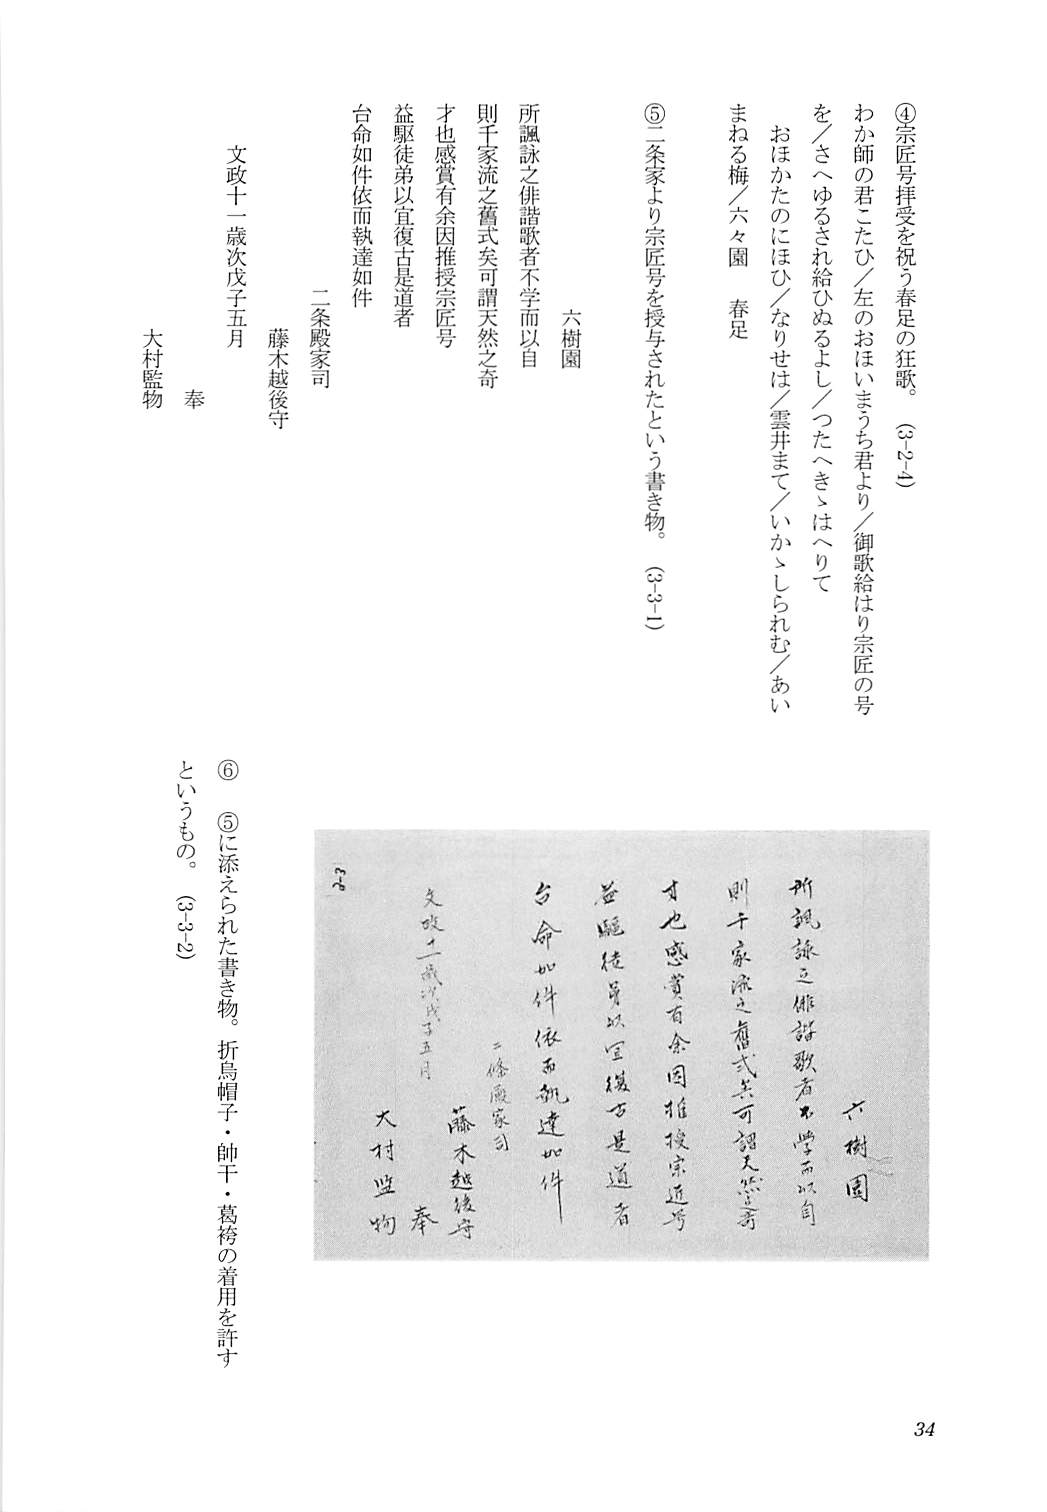 ④宗匠号拝受を祝う春足の狂歌。（3-2-4）
わか師の君こたひ／左のおほいまうち君より／御歌給はり宗匠の号
を／さへゆるされ給ひぬるよし／つたへきゝはへりて
おほかたのにほひ／なりせは／雲井まて／いかゝしられむ／あい
まねる梅／六々園　春足
⑤二条家より宗匠号を授与されたという書き物。（3-3-1）
六樹園
所諷詠之俳諧歌者不学而以自
則千家流之舊式矣可謂天然之奇
才也感賞有余因推授宗匠号
益駆徒弟以宜復古是道者
台命如件依而執達如件
二条殿家司
藤木越後守
文政十一歳次戊子五月
奉
大村監物
六樹園
所諷詠之俳諧歌者不学而以自
則千家流之舊式矣可謂天然之奇
才也感賞有余因推授宗匠号
益驅徒弟以宜復古是道者
台命如件依而執達如件
二條殿家司
藤木越後守
文政十一歳次戊子五月
奉
大村监物
⑥　⑤に添えられた書き物。折烏帽子・帥干・葛袴の着用を許す
というもの。（3-3-2）
34